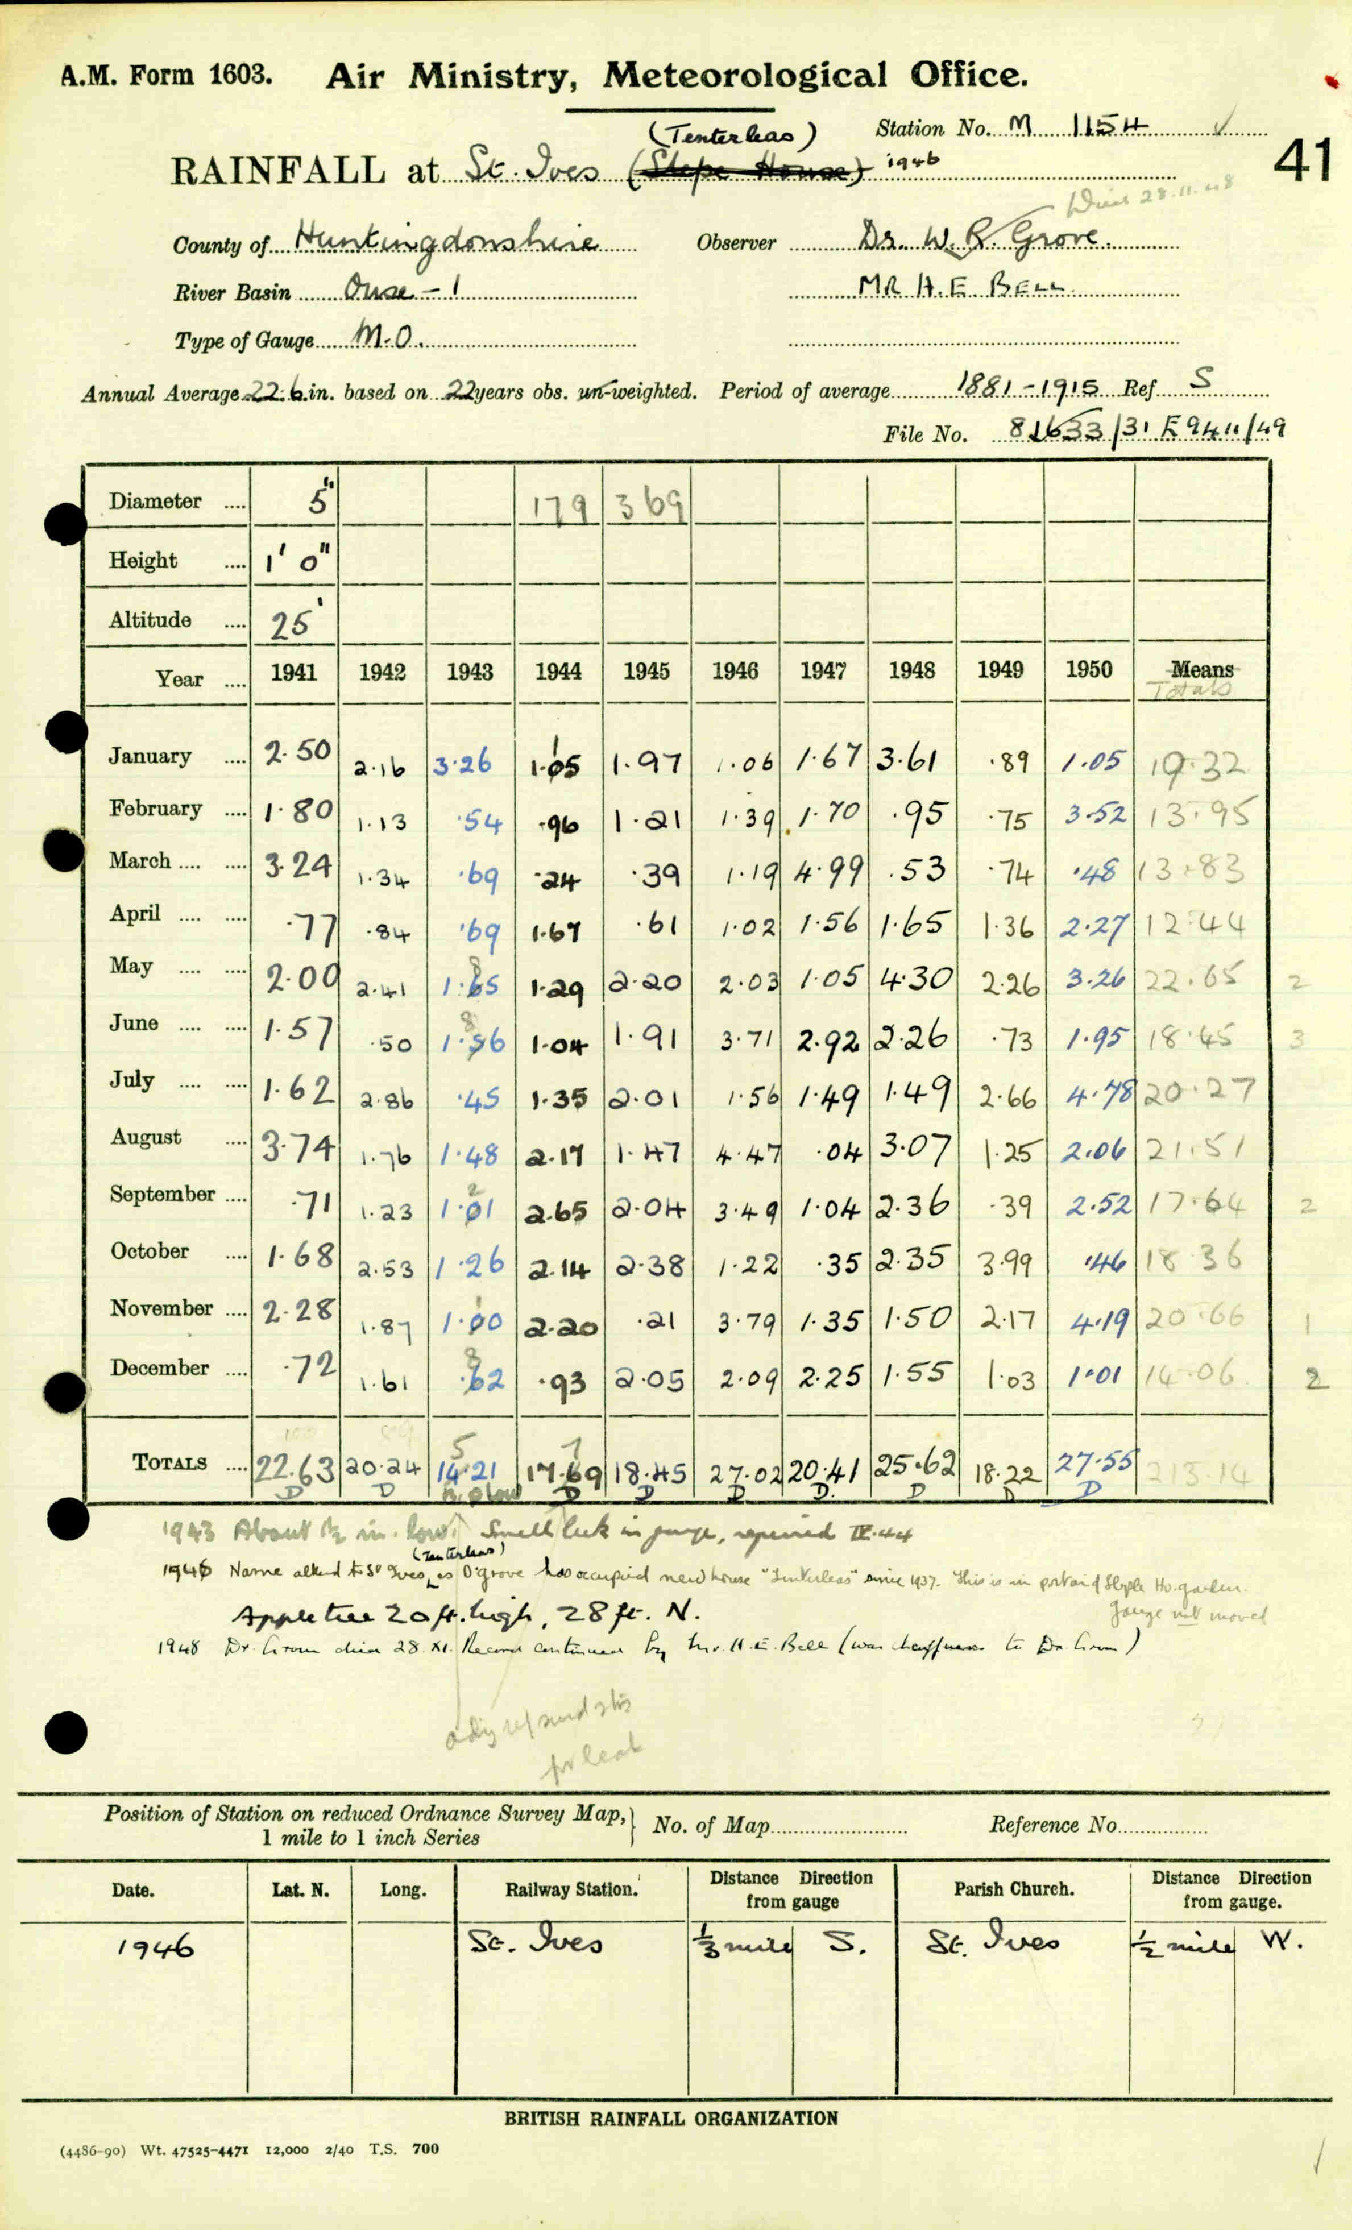 A.M. Form 1603. Air Ministry, Meteorological Office.
Station No. M 1154 ✓
(Tenterleas)
RAINFALL at St. Ives (Slepe House) 1946
41
Died 28.11.48
County of Huntingdonshire Observer Dr. W. R. Grove.
River Basin Ouse - 1 MR H. E. BELL
Type of Gauge M.O.
Annual Average 22.6 in. based on 22 years obs. un-weighted. Period of average 1881-1915 Ref S
File No. 81633/31 E9411/49
Diameter .... 5" 179 369
Height .... 1' 0"
Altitude .... 25'
Year .... 1941 1942 1943 1944 1945 1946 1947 1948 1949 1950 Means
Totals
January .... 2.50 2.16 3.26 1.05 1.97 1.06 1.67 3.61 .89 1.05 19.32
February .... 1.80 1.13 .54 .96 1.21 1.39 1.70 .95 .75 3.52 13.95
March .... .... 3.24 1.34 .69 .24 .39 1.19 4.99 .53 .74 .48 13.83
April .... .... .77 .84 .69 1.67 .61 1.02 1.56 1.65 1.36 2.27 12.44
May .... .... 2.00 2.41 1.65 1.29 2.20 2.03 1.05 4.30 2.26 3.26 22.65 2
June .... .... 1.57 .50 1.56 1.04 1.91 3.71 2.92 2.26 .73 1.95 18.45 3
July .... .... 1.62 2.86 .45 1.35 2.01 1.56 1.49 1.49 2.66 4.78 20.27
August .... 3.74 1.76 1.48 2.17 1.47 4.47 .04 3.07 1.25 2.06 21.51
September .... .71 1.23 1.01 2.65 2.04 3.49 1.04 2.36 .39 2.52 17.64 2
October .... 1.68 2.53 1.26 2.14 2.38 1.22 .35 2.35 3.99 .46 18.36
November .... 2.28 1.87 1.00 2.20 .21 3.79 1.35 1.50 2.17 4.19 20.66 1
December .... .72 1.61 .62 .93 2.05 2.09 2.25 1.55 1.03 1.01 14.06 2
TOTALS .... 22.63 20.24 14.21 17.69 18.45 27.02 20.41 25.62 18.22 27.55 213.14
D D D D D D. D D D
1943 About ½ in. low. Small leak in gauge, repaired IV.44
(Tenterleas)
1946 Name altered to St Ives as Dr grove has occupied new house "Tenterleas" since 1937. This is in part of Slepe Ho. garden.
gauge not moved
Apple tree 20 ft. high, 28 ft. N.
1948 Dr. Grove died 28.XI. Record continued by Mr. H. E. Bell (was chauffeur to Dr Grove)
for leak
Position of Station on reduced Ordnance Survey Map, } No. of Map Reference No.
1 mile to 1 inch Series
Date. Lat. N. Long. Railway Station. Distance from gauge Direction Parish Church. Distance from gauge. Direction
1946 St. Ives ⅓ mile S. St. Ives ½ mile W.
BRITISH RAINFALL ORGANIZATION
(4486-90) Wt. 47525-4471 12,000 2/40 T.S. 700